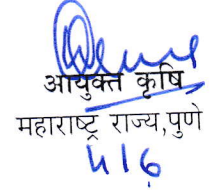 आयुक्त कृषि
महाराष्ट्र राज्य,पुणे
५/६